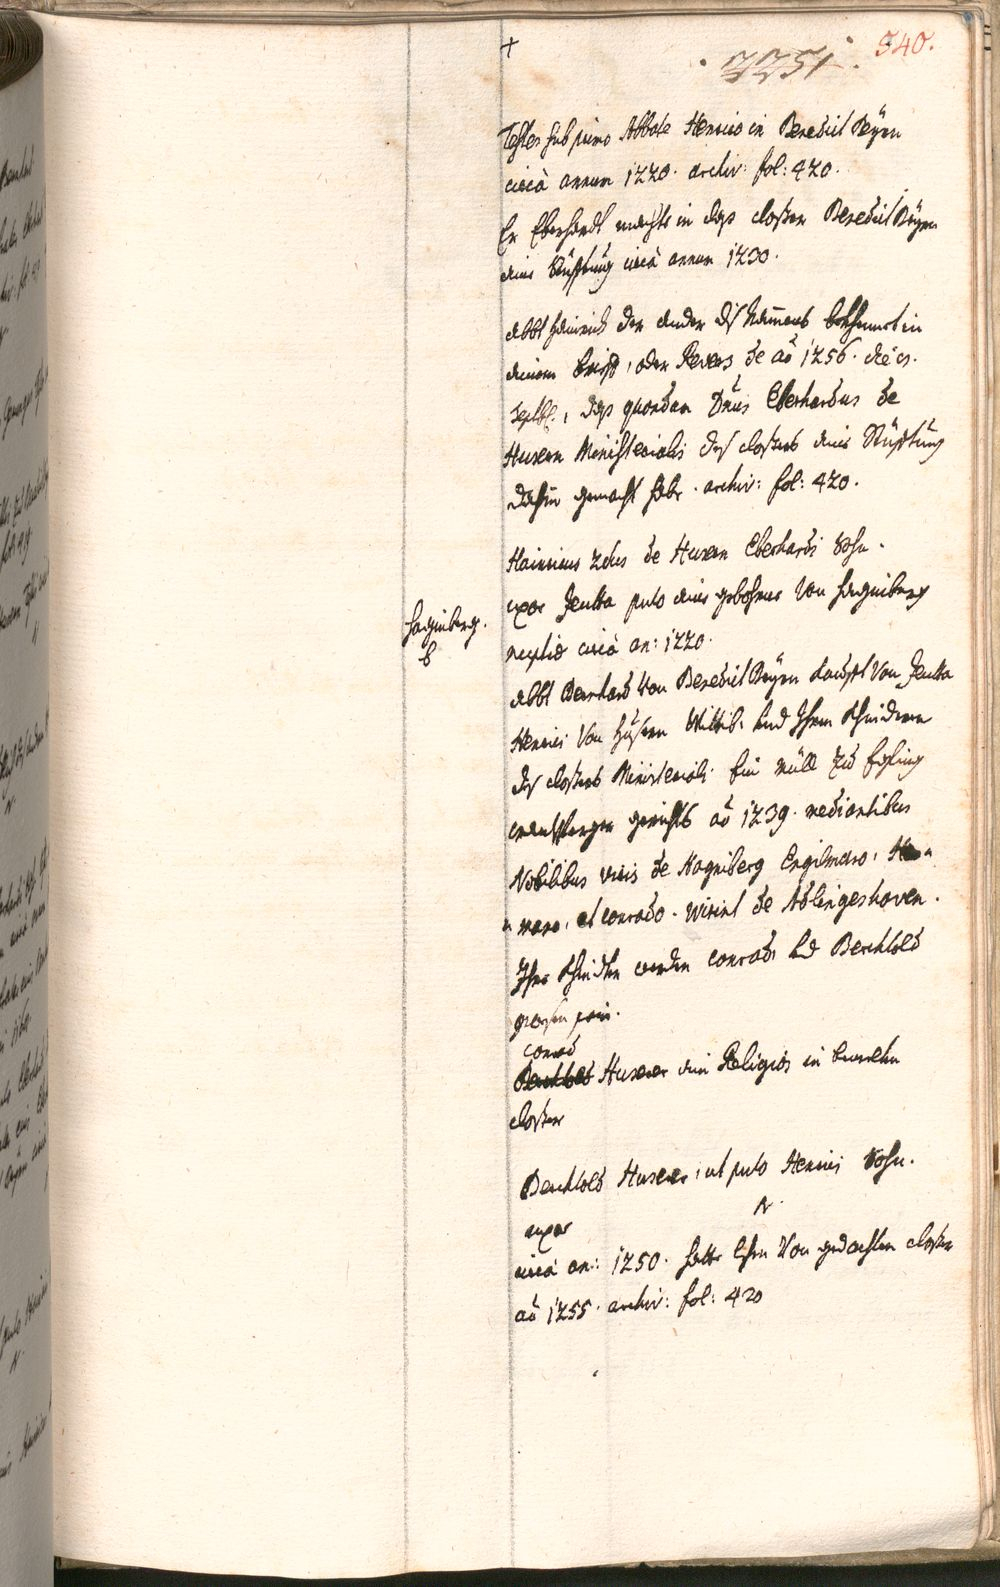 +
2251.
540.
Testes sub primo Abbate Henrico in Benedict Beÿrn
circà annum 1220. archiv: fol: 420.
Er Eberhardt machte in das closter Benedict Beÿrn
eine Stüfftung circà annum 1230.
Abbt Hainrich der ander diß Nammens bekhennet in
einem brieff, oder Revers de aõ 1256. die 15.
Septbr., daß quondam Dñus Eberhardus de
Husern Ministerialis deß closters eine Stüfftung
dahin gemacht habe. archiv: fol: 420.
Hainricus 2dus de Husern Eberhardi Sohn.
uxor Jeutta puto eine gebohrne von Haginberg
nuptiæ circà an: 1220.
Haginberg.
Abbt Bernhard von Benedict Beÿrn kaufft von Jeutta
Henrici von Häusern Wittib. und Ihren Khindern
deß closters Ministeriali. Ein Müll zu Egling
gerichts aõ 1239. mediantibus
Nobilibus viris de Hagniberg Engilmaro,
maro, et Conrado. Wirint de Adlingeshoven.
Ihre Khinder werden Conrad, und Berchtold
geweßen sein.
Conrad
Berchtold Huserer ein Religios in
closter
Berchtold Huserer, ut puto Henrici Sohn.
uxor N.
circà an: 1250. hatte Lehen von gedachten closter
aõ 1255. archiv: fol: 420